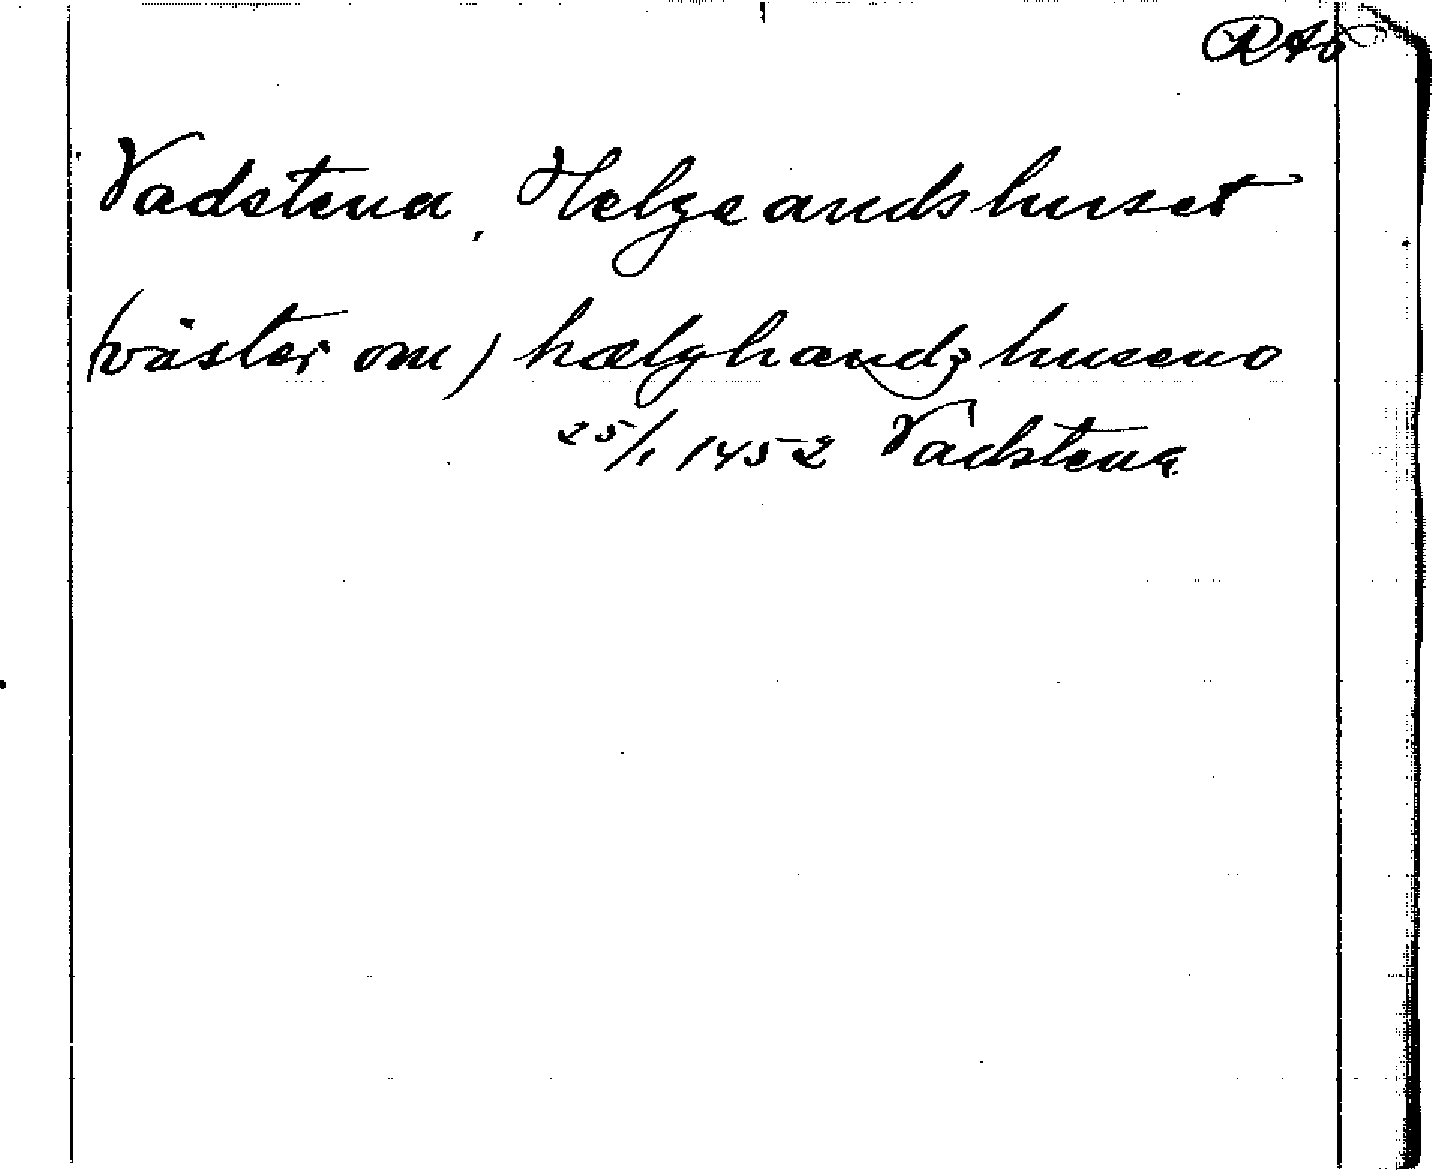 RAö
Vadstena, Helgeandshuset
(väster om) hælghændz huseno
25/1 1452 Vadstena